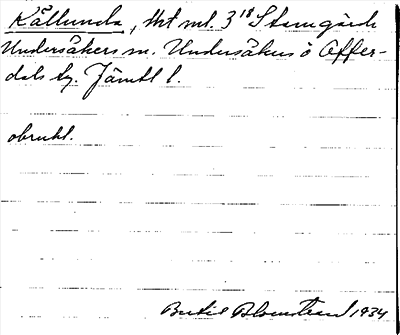 Källunda, tht nr. 3¹⁸ Stamgärde
Undersåkers sn. Undersåkers o Offer-
dals tg. Jämtl l.
obrukl.
Bertil Blomstrand 1934